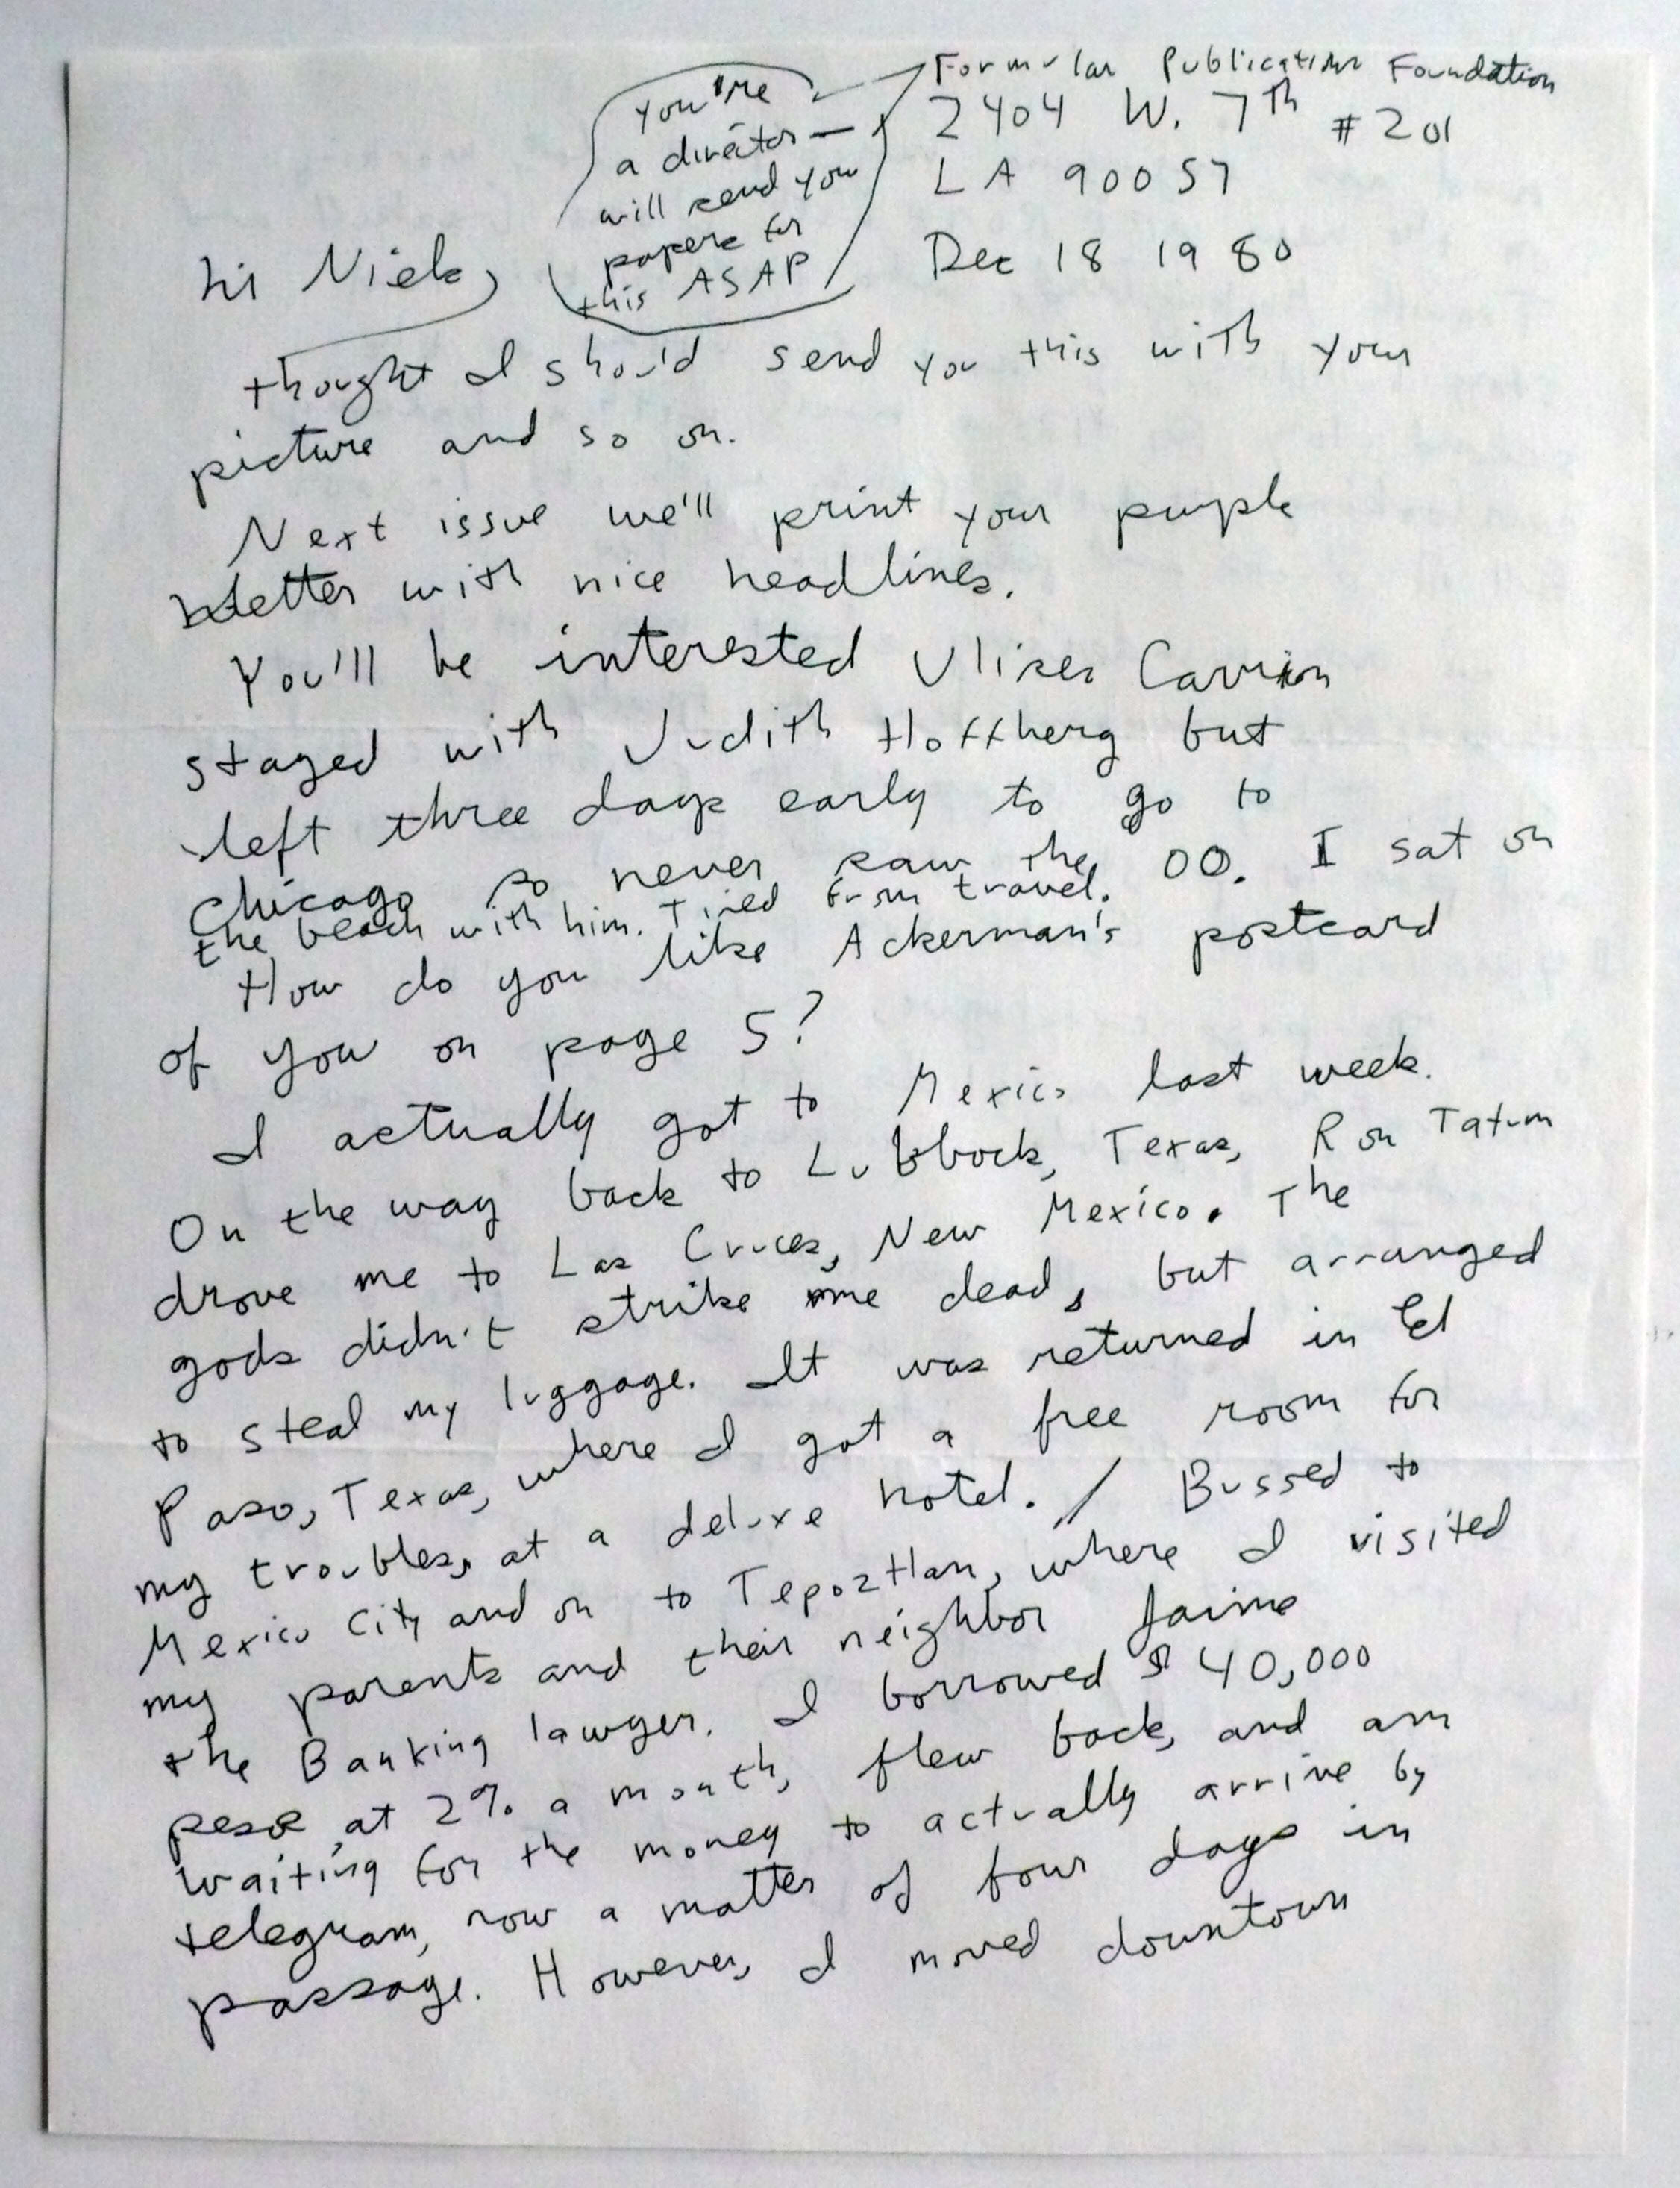 Formular Publications Foundation
2404 W. 7th #201
LA 90057
Dec 18 1980
you're
a director —
will send you
papers for
this ASAP
hi Niels,
thought I should send you this with your
picture and so on.
Next issue we'll print your purple
letter with nice headlines.
You'll be interested Ulises Carrion
stayed with Judith Hoffberg but
left three days early to go to
Chicago so never saw the OO. I sat on
the beach with him. Tired from travel.
How do you like Ackerman's postcard
of you on page 5?
I actually got to Mexico last week.
On the way back to Lubbock, Texas, Ron Tatum
drove me to Las Cruces, New Mexico. The
gods didn't strike me dead, but arranged
to steal my luggage. It was returned in El
Paso, Texas, where I got a free room for
my troubles, at a deluxe hotel. / Bussed to
Mexico City and on to Tepoztlan, where I visited
my parents and their neighbor Jaime
the Banking lawyer. I borrowed $40,000
peso at 2% a month, flew back, and am
waiting for the money to actually arrive by
telegram, now a matter of four days in
passage. However, I moved downtown